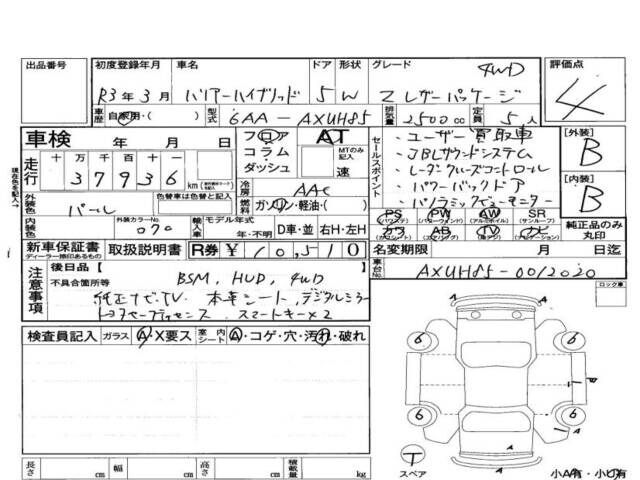 出品番号 初度登録年月 車名 ドア 形状 グレード 評価点
R3年3月 ハリアーハイブリッド 5 W Z レザーパッケージ 4WD 4
車歴 自家用・( ) 型式 6AA-AXUH85 排気量 2500cc 定員 5人
車検 年 月 日 フロア コラム ダッシュ AT MTのみ記入 速
現在地を記入→
走行 十万 万 千 百 十 37936 km
セールスポイント
・ユーザー買取車
・JBLサウンドシステム
・レーダークルーズコントロール
・パワーバックドア
・パノラミックビューモニター
[外装] B
[内装] B
冷房 AAC
外装色 パール 色替車は色替と記入
燃料 ガソリン・軽油・( )
内装色 外装カラーNo. 070 輸入車 モデル年式 年・不明 D車・並 右H・左H
PS (パワステ) PW (パワーウィンド) AW (アルミホイル) SR (サンルーフ)
カワ (カワシート) AB (エアバッグ) TV (テレビ) ナビ (ナビゲーション)
純正品のみ丸印
新車保証書 ディーラー捺印あるもの 取扱説明書 R券 ¥10,510 名変期限 月 日迄
車台No. AXUH85-0012020
注意事項 後日品 [ ]
不具合箇所等 BSM, HUD, 4WD
純正ナビ・TV 本革シート, デジタルミラー
トヨタセーフティセンス, スマートキー×2
ロック車
検査員記入 ガラス A・X要ス 室内シート A・コゲ・穴・汚れ・破れ
6 6
6 6
A A A
T
スペア
長さ cm 幅 cm 高さ cm 積載量 kg
小A有・小U有